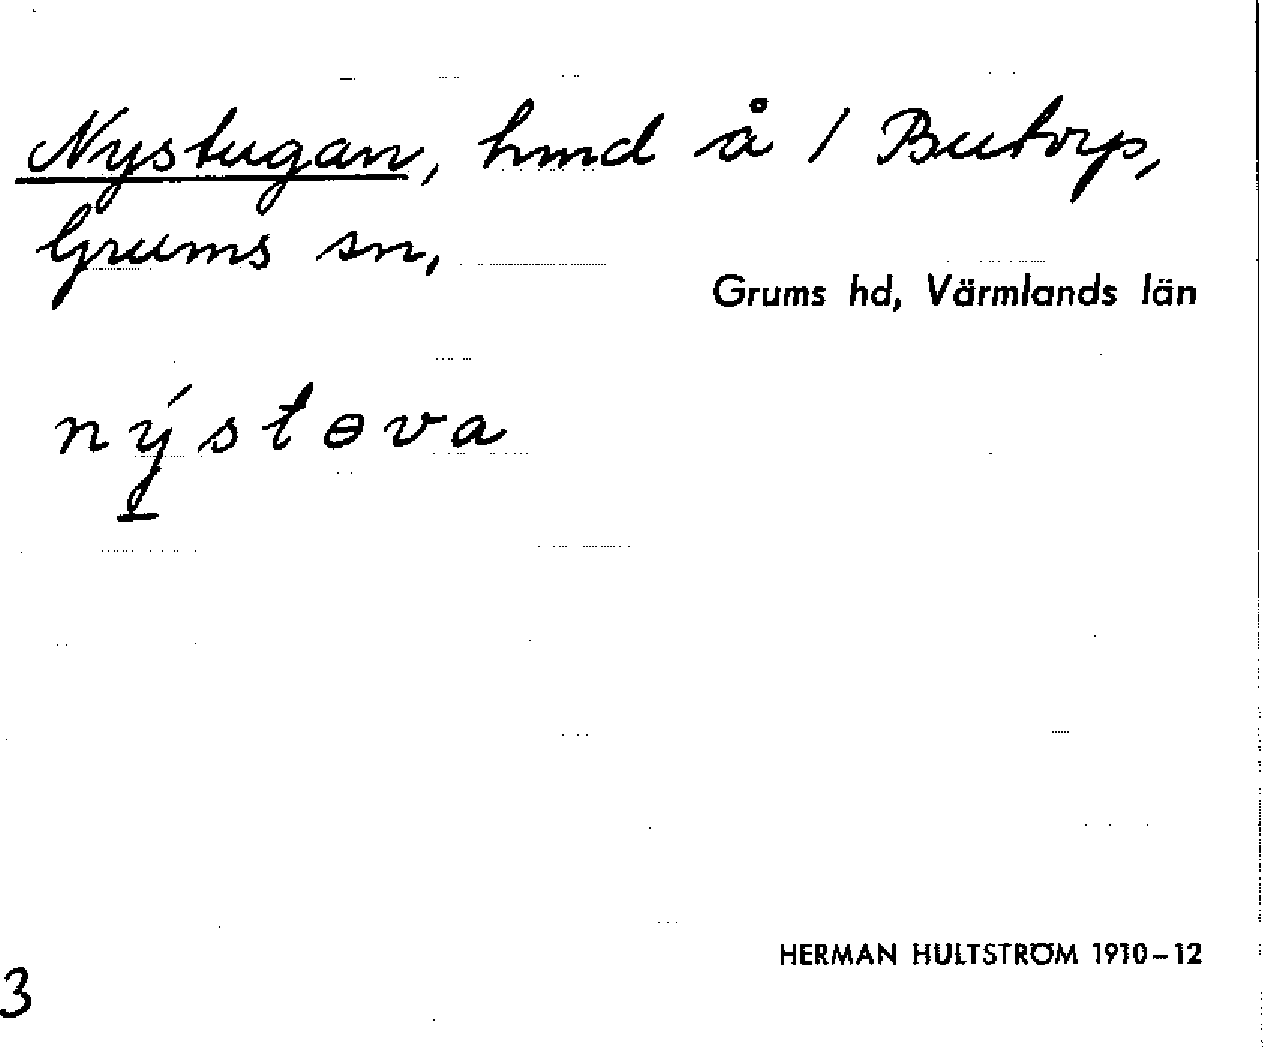 Nystugan, hmd å / Butorp,
Grums sn,
Grums hd, Värmlands län
nýstɵva
HERMAN HULTSTRÖM 1910-12
3